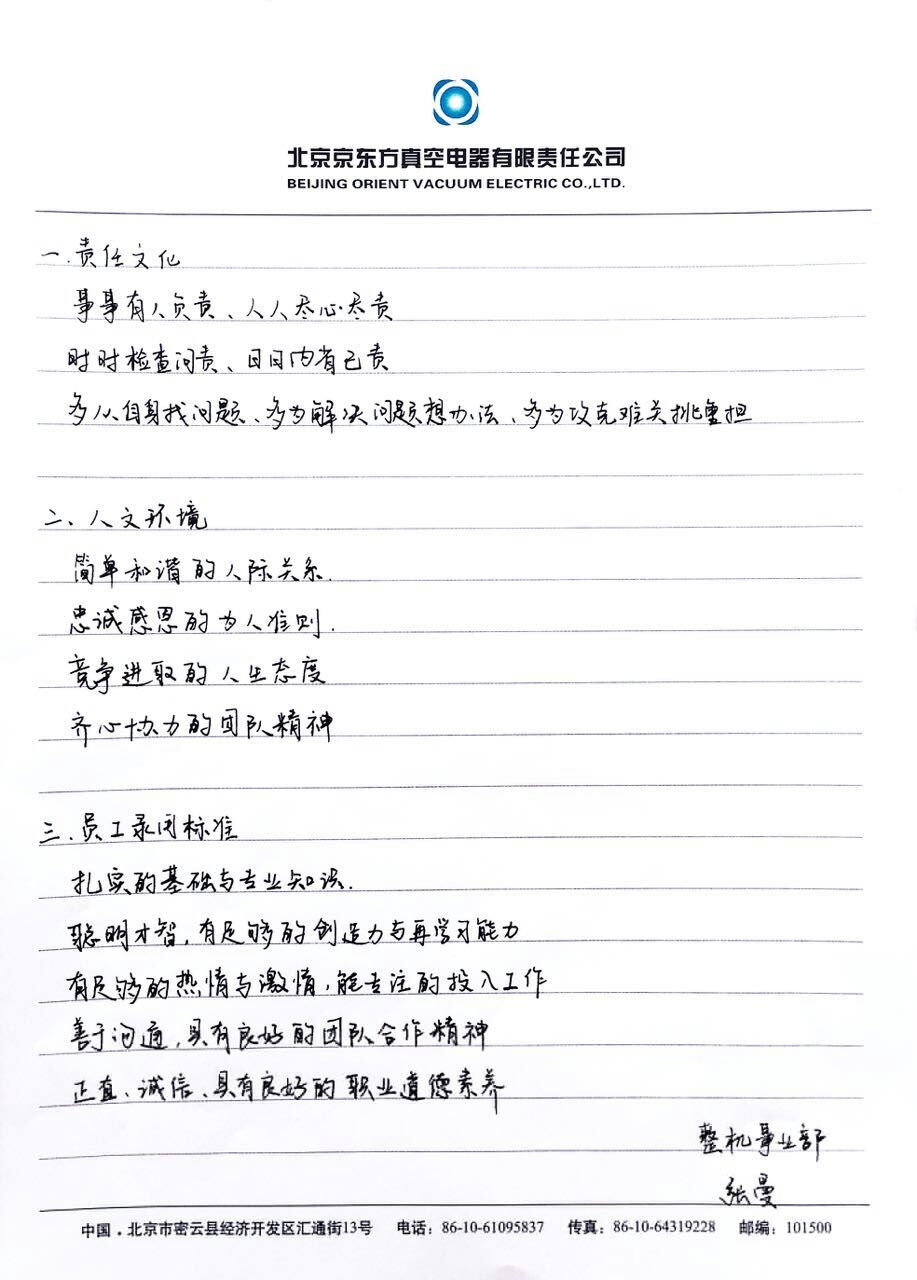 北京京东方真空电器有限责任公司
BEIJING ORIENT VACUUM ELECTRIC CO.,LTD.
一.责任文化
事事有人负责、人人尽心尽责
时时检查问责、日日内省己责
多从自身找问题、多为解决问题想办法、多为攻克难关挑重担
二、人文环境
简单和谐的人际关系.
忠诚感恩的为人准则.
竞争进取的人生态度
齐心协力的团队精神
三.员工录用标准
扎实的基础与专业知识.
聪明才智,有足够的创造力与再学习能力
有足够的热情与激情,能专注的投入工作
善于沟通,具有良好的团队合作精神
正直、诚信、具有良好的职业道德素养
整机事业部
张曼
中国.北京市密云县经济开发区汇通街13号 电话:86-10-61095837 传真:86-10-64319228 邮编:101500